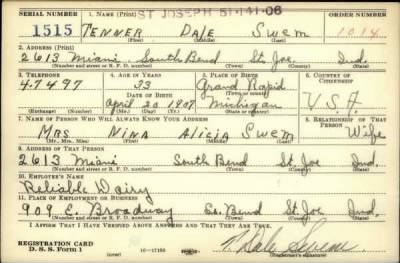 SERIAL NUMBER 1. NAME (Print) ST JOSEPH 51-141-06 ORDER NUMBER
1515 TENNER DALE Swem 1014
(First) (Middle) (Last)
2. ADDRESS (Print)
2613 Miami South Bend St. Joe. Ind.
(Number and street or R. F. D. number) (Town) (County) (State)
3. TELEPHONE 4. AGE IN YEARS 5. PLACE OF BIRTH 6. COUNTRY OF CITIZENSHIP
47497 33 Grand Rapid
DATE OF BIRTH (Town or county)
April 20 1907 Michigan U.S.A.
(Exchange) (Number) (Mo.) (Day) (Yr.) (State or country)
7. NAME OF PERSON WHO WILL ALWAYS KNOW YOUR ADDRESS 8. RELATIONSHIP OF THAT PERSON
Mrs Nina Alicia Swem Wife
(Mr., Mrs., Miss) (First) (Middle) (Last)
9. ADDRESS OF THAT PERSON
2613 Miami South Bend St. Joe Ind.
(Number and street or R. F. D. number) (Town) (County) (State)
10. EMPLOYER'S NAME
Reliable Dairy
11. PLACE OF EMPLOYMENT OR BUSINESS
909 E. Broadway So. Bend St Joe Ind.
(Number and street or R. F. D. number) (Town) (County) (State)
I AFFIRM THAT I HAVE VERIFIED ABOVE ANSWERS AND THAT THEY ARE TRUE.
REGISTRATION CARD
D. S. S. Form 1 (over) Dale Swem